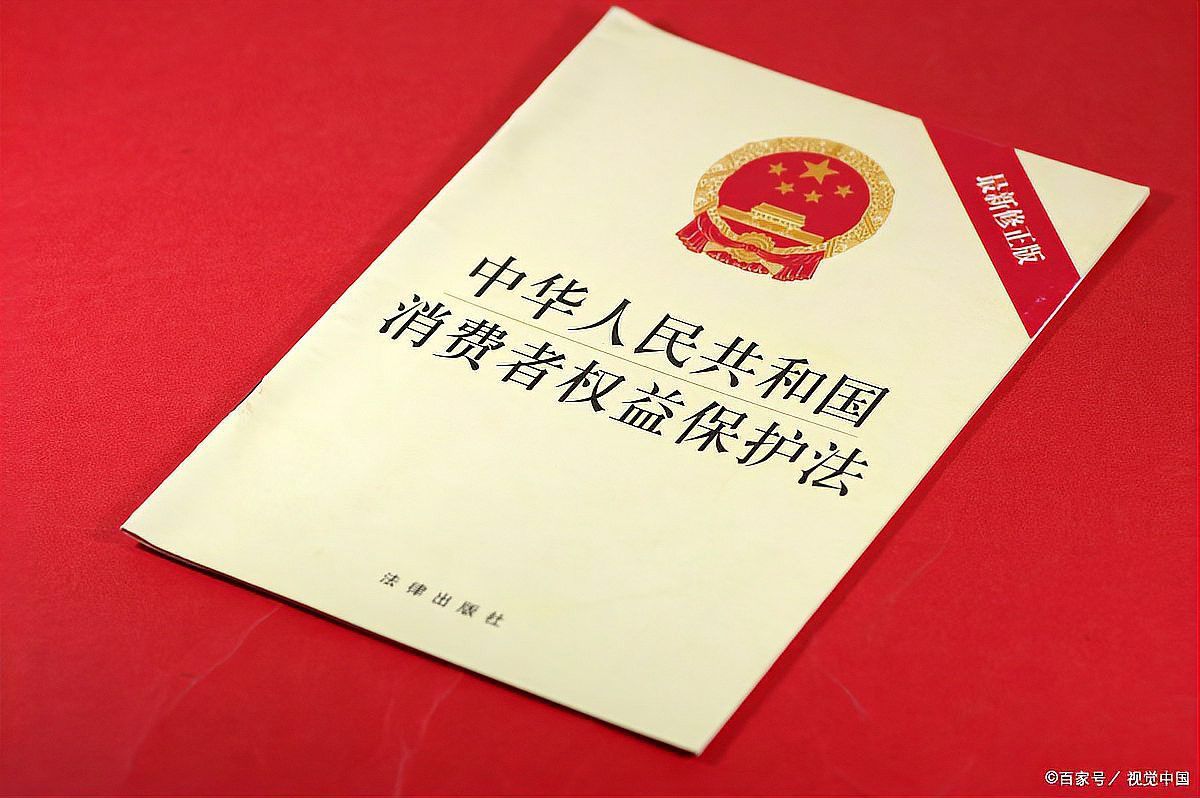 最新修正版
中华人民共和国
消费者权益保护法
法律出版社
©百家号／视觉中国